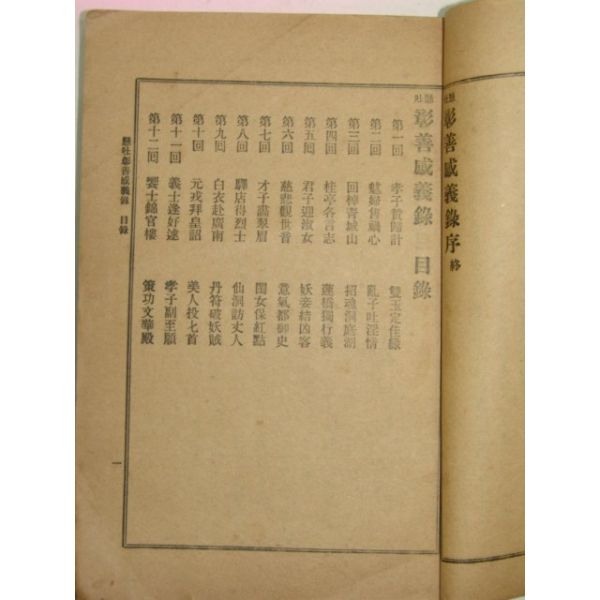 懸吐 彰善感義錄序 終
懸吐 彰善感義錄 目錄
第一回 孝子賛歸計 雙玉定佳緣
第二回 魃婦售禍心 亂子吐淫情
第三回 回棹靑城山 招魂洞庭湖
第四回 桂亭各言志 蓮橋獨行義
第五回 君子迎淑女 妖妾結凶客
第六回 慈悲觀世音 意氣都御史
第七回 才子畵翠眉 閨女保紅點
第八回 驛店得烈士 仙洞訪丈人
第九回 白衣赴廣南 丹符破妖賊
第十回 元戎拜皇詔 美人投匕首
第十一回 義士逢好逑 孝子副至願
第十二回 饗士錦官樓 策功文華殿
懸吐彰善感義錄 目錄
一